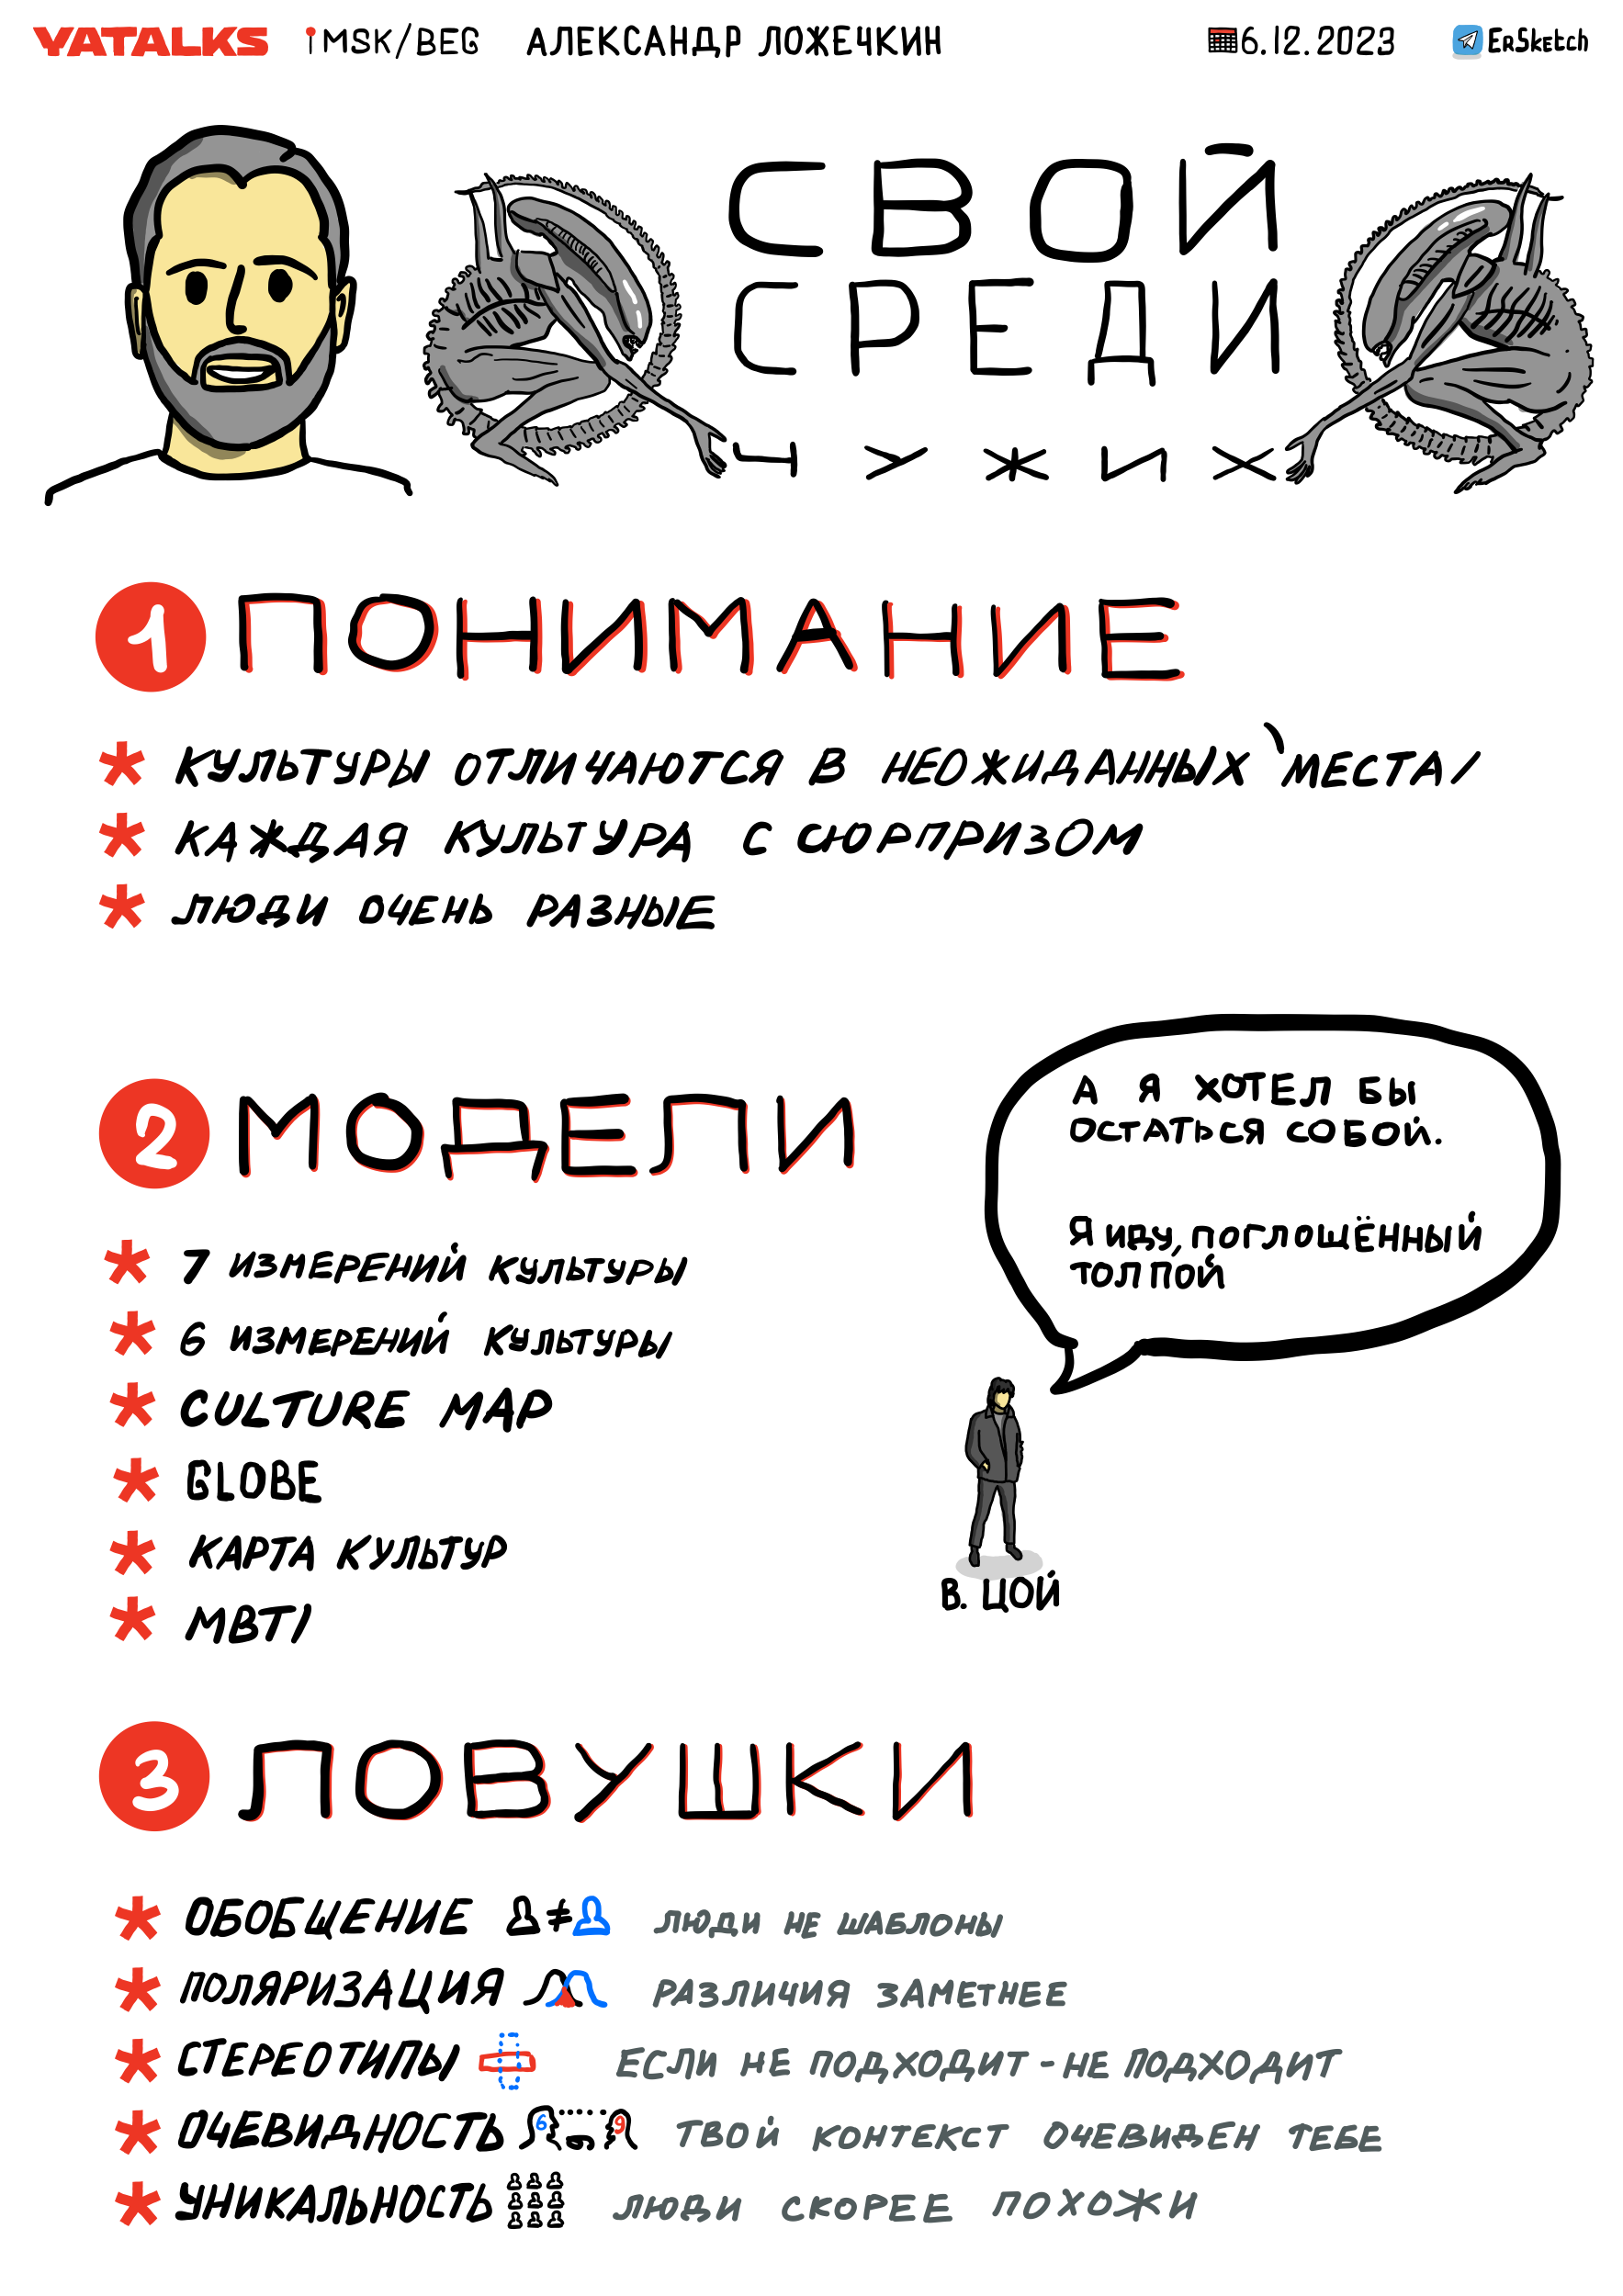 YATALKS MSK/BEG АЛЕКСАНДР ЛОЖЕЧКИН 6.12.2023 ERSKETCH
СВОЙ
СРЕДИ
ЧУЖИХ
1 ПОНИМАНИЕ
* КУЛЬТУРЫ ОТЛИЧАЮТСЯ В НЕОЖИДАННЫХ МЕСТАХ
* КАЖДАЯ КУЛЬТУРА С СЮРПРИЗОМ
* ЛЮДИ ОЧЕНЬ РАЗНЫЕ
2 МОДЕЛИ
* 7 ИЗМЕРЕНИЙ КУЛЬТУРЫ
* 6 ИЗМЕРЕНИЙ КУЛЬТУРЫ
* CULTURE MAP
* GLOBE
* КАРТА КУЛЬТУР
* MBTI
А Я ХОТЕЛ БЫ
ОСТАТЬСЯ СОБОЙ.
Я ИДУ, ПОГЛОЩЁННЫЙ
ТОЛПОЙ
В. ЦОЙ
3 ЛОВУШКИ
* ОБОБЩЕНИЕ ≠ ЛЮДИ НЕ ШАБЛОНЫ
* ПОЛЯРИЗАЦИЯ РАЗЛИЧИЯ ЗАМЕТНЕЕ
* СТЕРЕОТИПЫ ЕСЛИ НЕ ПОДХОДИТ - НЕ ПОДХОДИТ
* ОЧЕВИДНОСТЬ 6 9 ТВОЙ КОНТЕКСТ ОЧЕВИДЕН ТЕБЕ
* УНИКАЛЬНОСТЬ ЛЮДИ СКОРЕЕ ПОХОЖИ